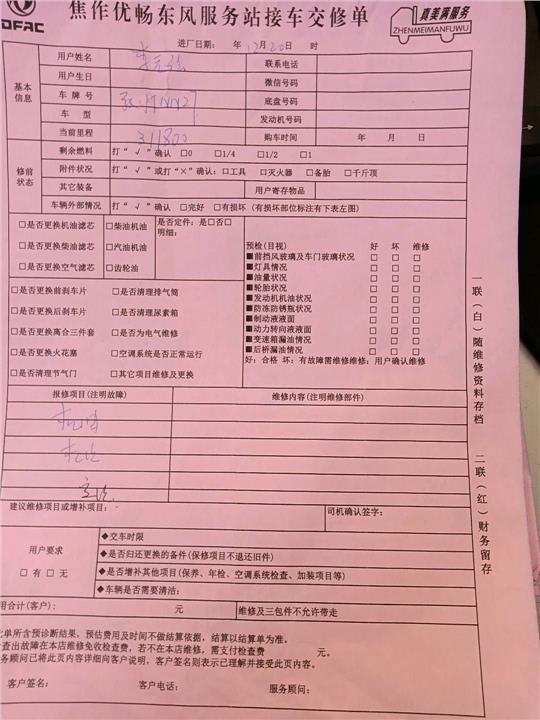 焦作优畅东风服务站接车交修单
DFAC
真美满服务
ZHENMEIMANFUWU
进厂日期： 年 12月20日 时
基本信息
用户姓名 联系电话
用户生日 微信号码
车 牌 号 底盘号码
车 型 发动机号码
当前里程 311800 购车时间 年 月 日
修前状态
剩余燃料 打“ √ ”确认 □0 □1/4 □1/2 □1
附件状况 打“ √ ”或打“×”确认：□工具 □灭火器 □备胎 □千斤顶
其它装备 用户寄存物品
车辆外部情况 打“ √ ”确认 □完好 □有损坏（有损坏部位标注有下表左图）
□是否更换机油滤芯 □柴油机油 是否定件：是□否□
明细：
□是否更换柴油滤芯 □汽油机油
□是否更换空气滤芯 □齿轮油
预检(目视) 好 坏 维修
■前挡风玻璃及车门玻璃状况 □ □ □
■灯具情况 □ □ □
■油量状况 □ □ □
■轮胎状况 □ □ □
■发动机机油状况 □ □ □
■防冻防锈瓶状况 □ □ □
■制动液液面 □ □ □
■动力转向液液面 □ □ □
■变速箱漏油情况 □ □ □
■后桥漏油情况 □ □ □
好：合格 坏：有故障需维修维修：用户确认维修
□是否更换前刹车片 □是否清理排气筒
□是否更换后刹车片 □是否清理尿素箱
□是否更换离合三件套 □是否为电气维修
□是否更换火花塞 □空调系统是否正常运行
□是否清理节气门 □其它项目维修及更换
报修项目(注明故障) 维修内容(注明维修部件)
建议维修项目或增补项目： 司机确认签字：
用户要求
□ 有 □ 无
◆交车时限
◆是否归还更换的备件(保修项目不退还旧件)
◆是否增补其他项目(保养、年检、空调系统检查、加装项目等)
◆车辆是否需要清洁：
用合计(客户)： 元 维修及三包件不允许带走
此单所含预诊断结果，预估费用及时间不做结算依据，结算以结算单为准。
查出故障在本店维修免收检查费，若不在本店维修，需支付检查费 元。
务顾问已将此页内容详细向客户说明，客户签名则表示已理解并接受此页内容。
客户签名： 客户电话： 服务顾问：
一联（白）随维修资料存档 二联（红）财务留存